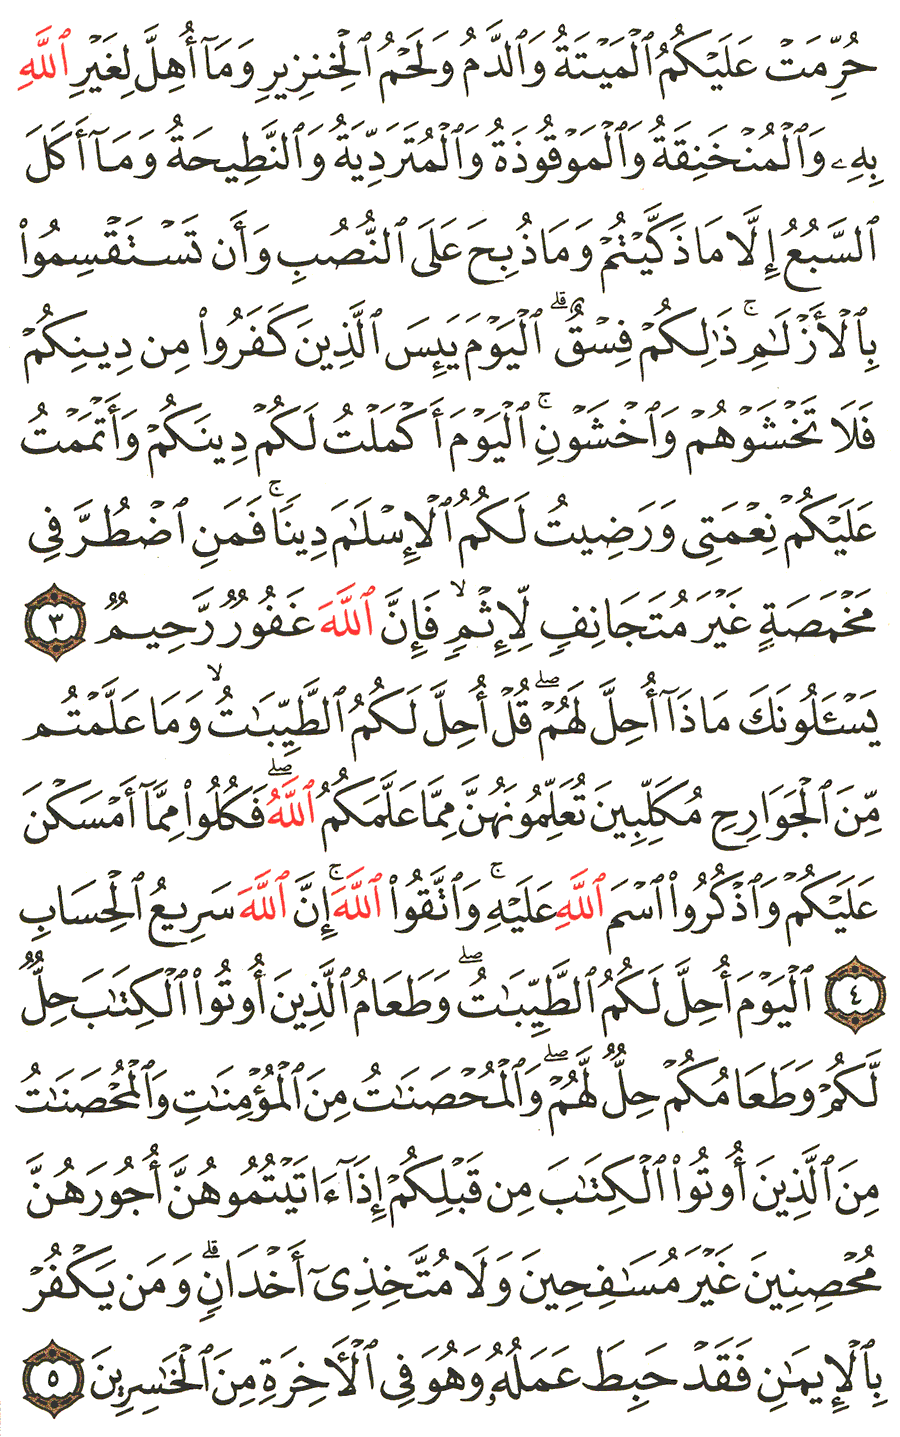 حُرِّمَتْ عَلَيْكُمُ ٱلْمَيْتَةُ وَٱلدَّمُ وَلَحْمُ ٱلْخِنزِيرِ وَمَآ أُهِلَّ لِغَيْرِ ٱللَّهِ
بِهِۦ وَٱلْمُنْخَنِقَةُ وَٱلْمَوْقُوذَةُ وَٱلْمُتَرَدِّيَةُ وَٱلنَّطِيحَةُ وَمَآ أَكَلَ
ٱلسَّبُعُ إِلَّا مَا ذَكَّيْتُمْ وَمَا ذُبِحَ عَلَى ٱلنُّصُبِ وَأَن تَسْتَقْسِمُوا۟
بِٱلْأَزْلَـٰمِ ۚ ذَٰلِكُمْ فِسْقٌ ۗ ٱلْيَوْمَ يَئِسَ ٱلَّذِينَ كَفَرُوا۟ مِن دِينِكُمْ
فَلَا تَخْشَوْهُمْ وَٱخْشَوْنِ ۚ ٱلْيَوْمَ أَكْمَلْتُ لَكُمْ دِينَكُمْ وَأَتْمَمْتُ
عَلَيْكُمْ نِعْمَتِى وَرَضِيتُ لَكُمُ ٱلْإِسْلَـٰمَ دِينًا ۚ فَمَنِ ٱضْطُرَّ فِى
مَخْمَصَةٍ غَيْرَ مُتَجَانِفٍ لِّإِثْمٍ ۙ فَإِنَّ ٱللَّهَ غَفُورٌ رَّحِيمٌ ٣
يَسْـَٔلُونَكَ مَاذَآ أُحِلَّ لَهُمْ ۖ قُلْ أُحِلَّ لَكُمُ ٱلطَّيِّبَـٰتُ ۙ وَمَا عَلَّمْتُم
مِّنَ ٱلْجَوَارِحِ مُكَلِّبِينَ تُعَلِّمُونَهُنَّ مِمَّا عَلَّمَكُمُ ٱللَّهُ ۖ فَكُلُوا۟ مِمَّآ أَمْسَكْنَ
عَلَيْكُمْ وَٱذْكُرُوا۟ ٱسْمَ ٱللَّهِ عَلَيْهِ ۚ وَٱتَّقُوا۟ ٱللَّهَ ۚ إِنَّ ٱللَّهَ سَرِيعُ ٱلْحِسَابِ
٤ ٱلْيَوْمَ أُحِلَّ لَكُمُ ٱلطَّيِّبَـٰتُ ۖ وَطَعَامُ ٱلَّذِينَ أُوتُوا۟ ٱلْكِتَـٰبَ حِلٌّ
لَّكُمْ وَطَعَامُكُمْ حِلٌّ لَّهُمْ ۖ وَٱلْمُحْصَنَـٰتُ مِنَ ٱلْمُؤْمِنَـٰتِ وَٱلْمُحْصَنَـٰتُ
مِنَ ٱلَّذِينَ أُوتُوا۟ ٱلْكِتَـٰبَ مِن قَبْلِكُمْ إِذَآ ءَاتَيْتُمُوهُنَّ أُجُورَهُنَّ
مُحْصِنِينَ غَيْرَ مُسَـٰفِحِينَ وَلَا مُتَّخِذِىٓ أَخْدَانٍ ۗ وَمَن يَكْفُرْ
بِٱلْإِيمَـٰنِ فَقَدْ حَبِطَ عَمَلُهُۥ وَهُوَ فِى ٱلْـَٔاخِرَةِ مِنَ ٱلْخَـٰسِرِينَ ٥